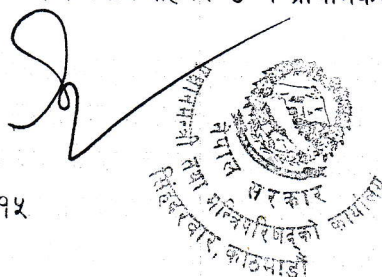 नेपाल सरकार
प्रधानमन्त्री तथा मन्त्रिपरिषद्को कार्यालय
सिंहदरबार, काठमाडौं
१५